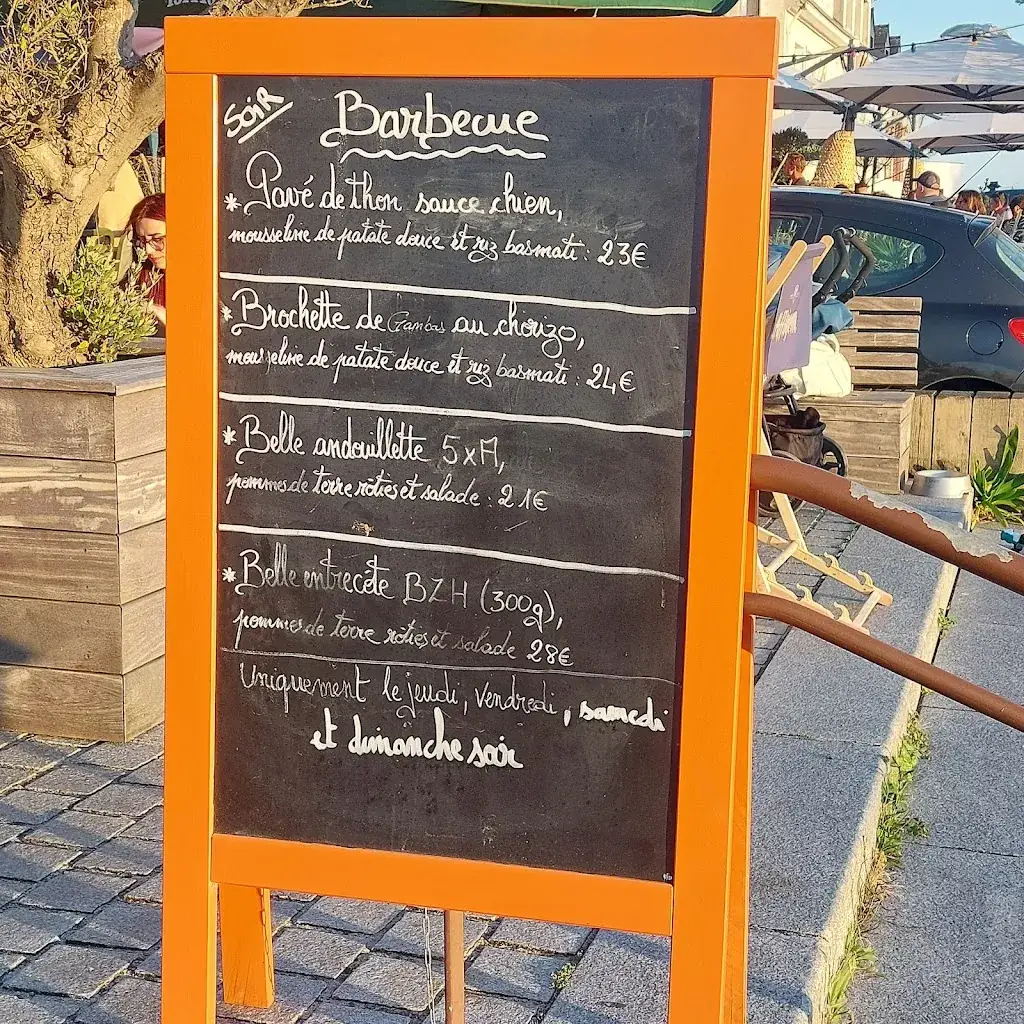 Soir
Barbecue
* Pavé de thon sauce chien,
mousseline de patate douce et riz basmati : 23€
* Brochette de Gambas au chorizo,
mousseline de patate douce et riz basmati : 24€
* Belle andouillette 5xA,
pommes de terre rôties et salade : 21€
* Belle entrecôte BZH (300g),
pommes de terre rôties et salade 28€
Uniquement le jeudi, vendredi, samedi
et dimanche soir